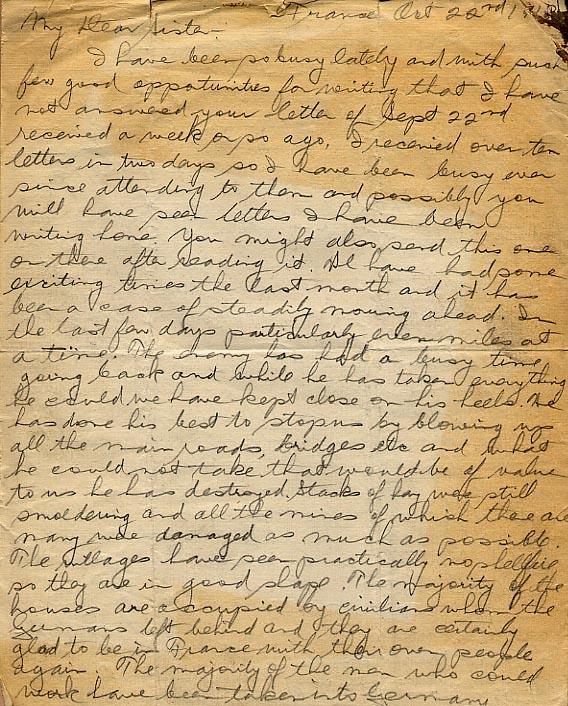 France Oct 22nd 1918
My Dear Sister-
I have been so busy lately and with such
few good opportunities for writing that I have
not answered your letter of Sept 22nd
received a week or so ago. I received over ten
letters in two days so I have been busy ever
since attending to them and possibly you
will have seen letters I have been
writing home. You might also send this one
on there after reading it. We have had some
exciting times the last month and it has
been a case of steadily moving ahead. In
the last few days particularly even miles at
a time. The enemy has had a busy time
going back and while he has taken everything
he could we have kept close on his heels. He
has done his best to stop us by blowing up
all the main roads, bridges etc and what
he could not take that would be of value
to us he has destroyed. Stacks of hay were still
smoldering and all the mines of which there are
many were damaged as much as possible.
The villages have seen practically no shelling
so they are in good shape. The majority of the
houses are occupied by civilians whom the
Germans left behind and they are certainly
glad to be in France with their own people
again. The majority of the men who could
work have been taken into Germany